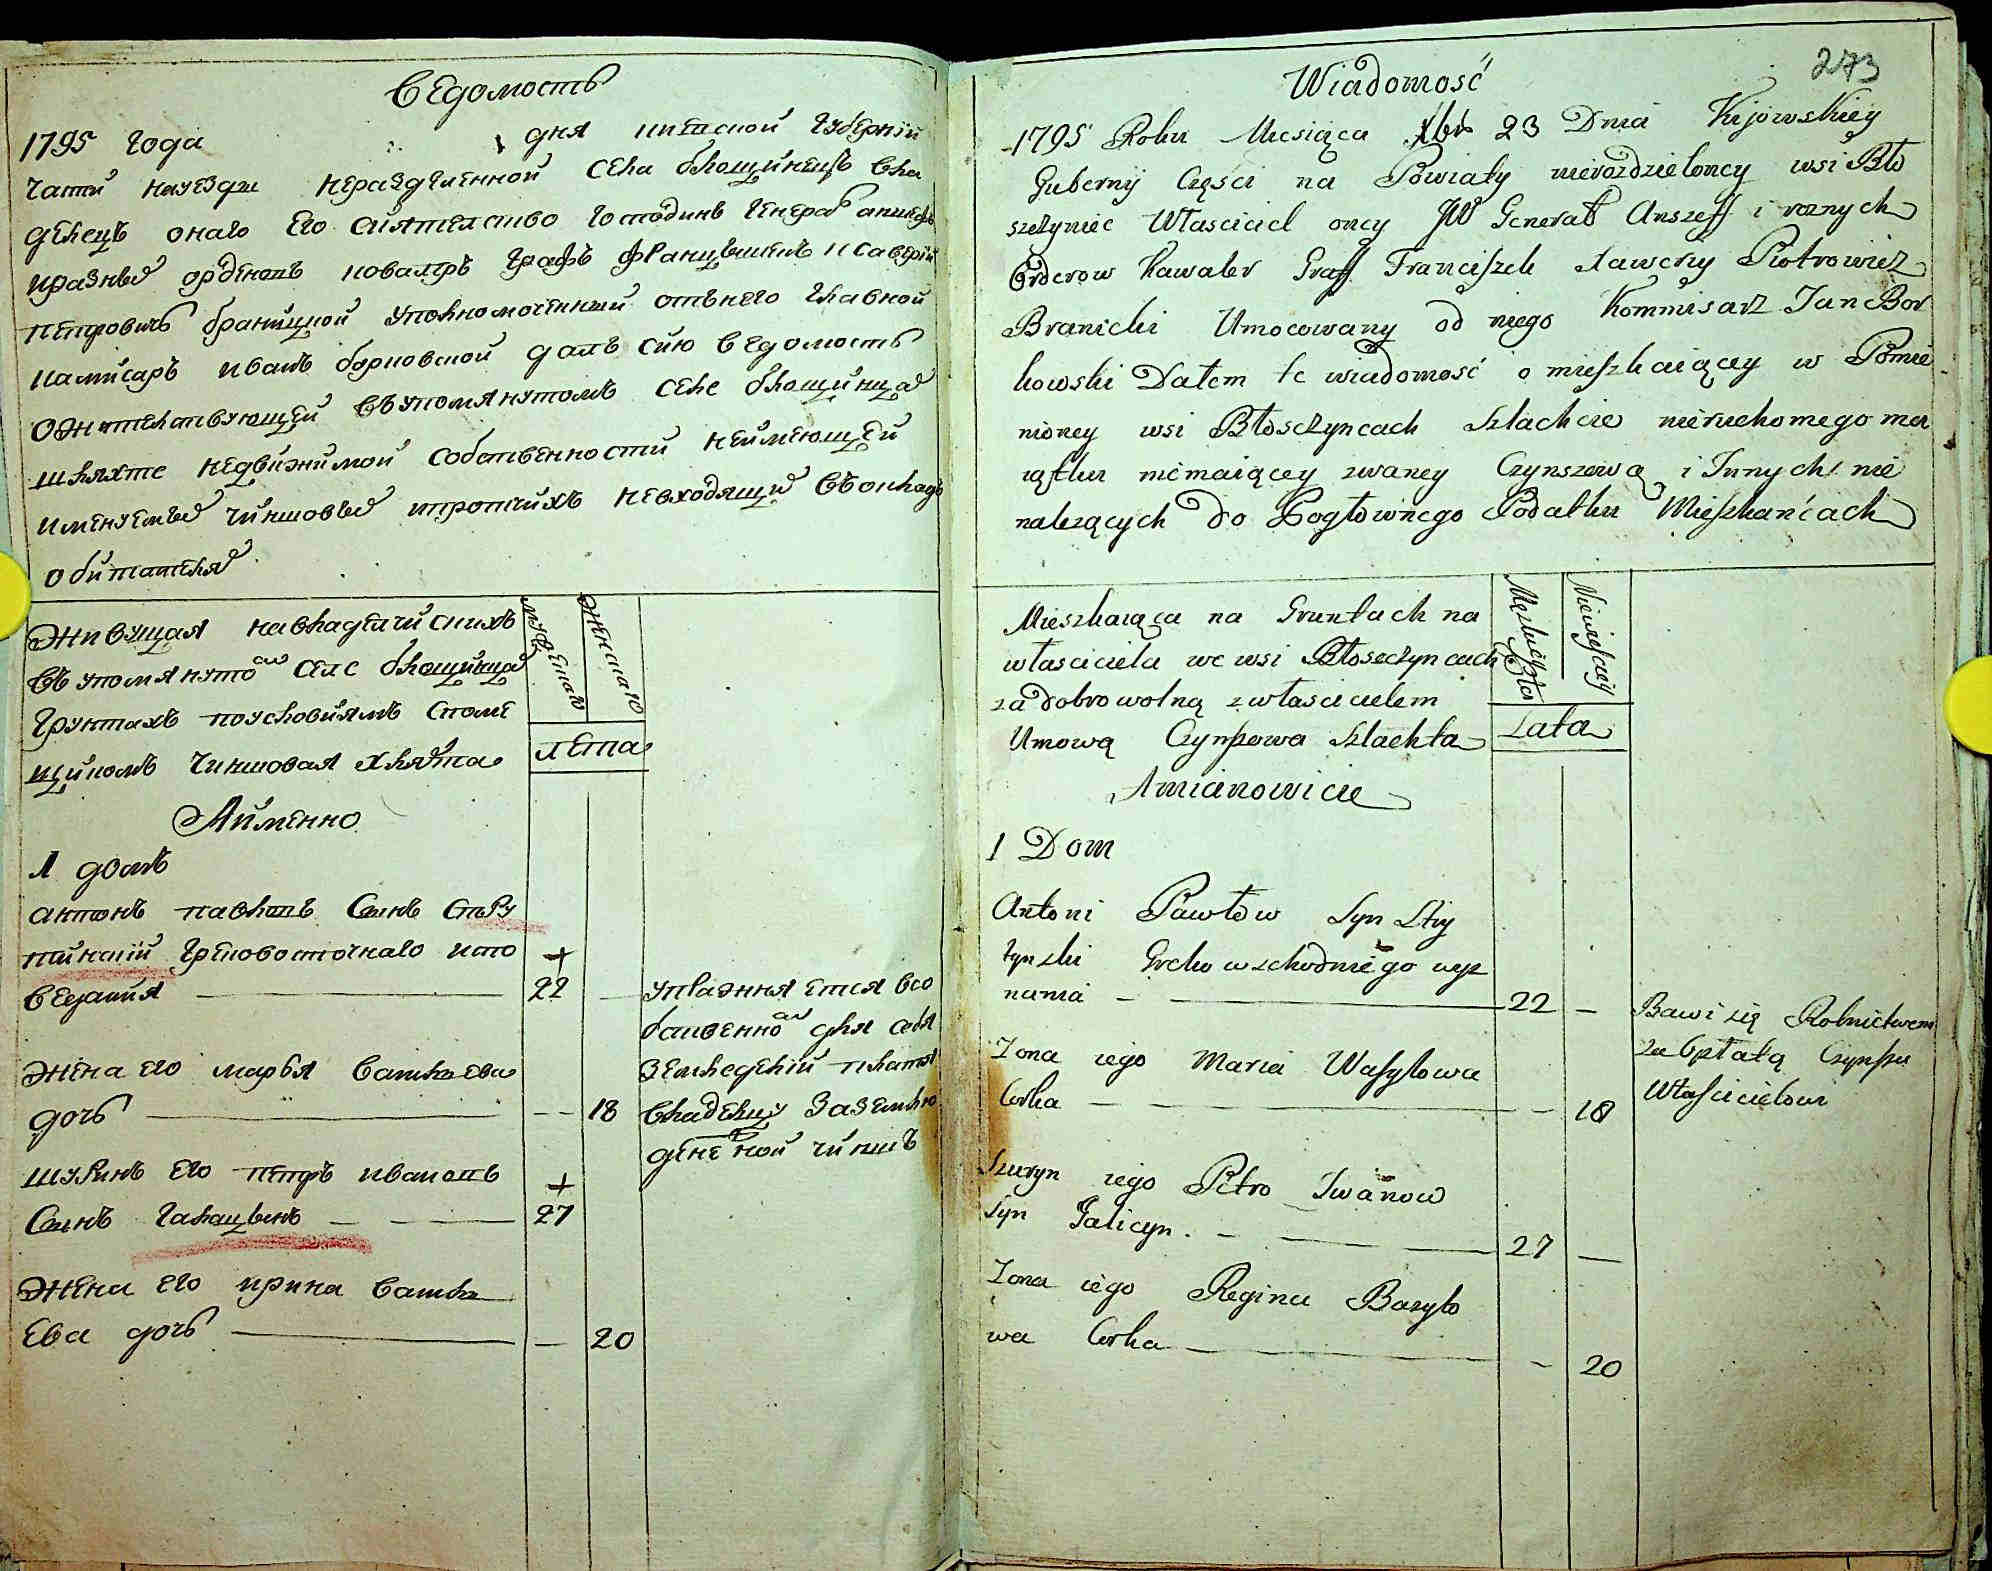 Ведомость
1795 года дня киевской губернии
части науезди неразделенной села блощинецъ вла
делецъ онаго его сиятелство господинъ генералъ аншефъ
иразныхъ орденовъ ковалеръ графъ францышекъ ксаверий
петровичъ браницкой уполномоченный отънего главной
камисаръ иванъ борковской далъ сию ведомость
ожителствующей въупомянутомъ селе блощинцахъ
шляхте недвижимой собственности неимеющей
именуемыхъ чиншовыхъ ипротчихъ невходящихъ въокладъ
обитателяхъ
Живущая навладелчискихъ
въупомянутомъ селе блощинцахъ
грунтахъ поусловиямъ споме
щикомъ чиншовая хляхта
мужеска
женска
лета
Аименно
1 домъ
антонъ павловъ Сынъ Стри
пинский грековосточнаго испо
ведания 22 —
упражняется всо
бственномъ для себя
земледелии платя
владелцу заземлю
денежной чиншъ
жена его марья василева
дочь — 18
шуринъ его петръ ивановъ
Сынъ галицынъ 27
жена его ирина васил
ева дочь — 20
273
Wiadomość
1795 Roku Miesiąca Xbra 23 Dnia Kijowskiey
Gubernij Części na Powiaty nierozdzieloney wsi Bło
szczyniec Własciciel oney JW Generał Anszeff i roznych
Orderow Kawaler Graff Franciszek Xawery Piotrowicz
Branicki Umocowany od niego Kommisarz Jan Bor
kowski Dałem te wiadomość o mieszkaiącey w Pomie
nioney wsi Błosczyncach Szlachcie nieruchomego ma
iątku niemaiącey zwaney Czynszową i Innych nie
nalezących do Pogłownego Podatku Mieszkańcach
Mieszkaiąca na Gruntach na
własciciela we wsi Błosczyncach
za dobrowolną z własciecielem
Umową Czynszowa Szlachta
Męzkiey Płci
Niewiesciey
Lata
Amianowicie
1 Dom
Antoni Pawłow Syn Stry
pynski Greko wschodniego wyz
nania 22 —
Bawi się Rolnictwem
za Opłatą Czynszu
Włascicielowi
Zona iego Maria Wasylowa
Corka — 18
Szuryn iego Petro Iwanow
Syn Galicyn. 27 —
Zona iego Regina Bazylo
wa Corka — 20